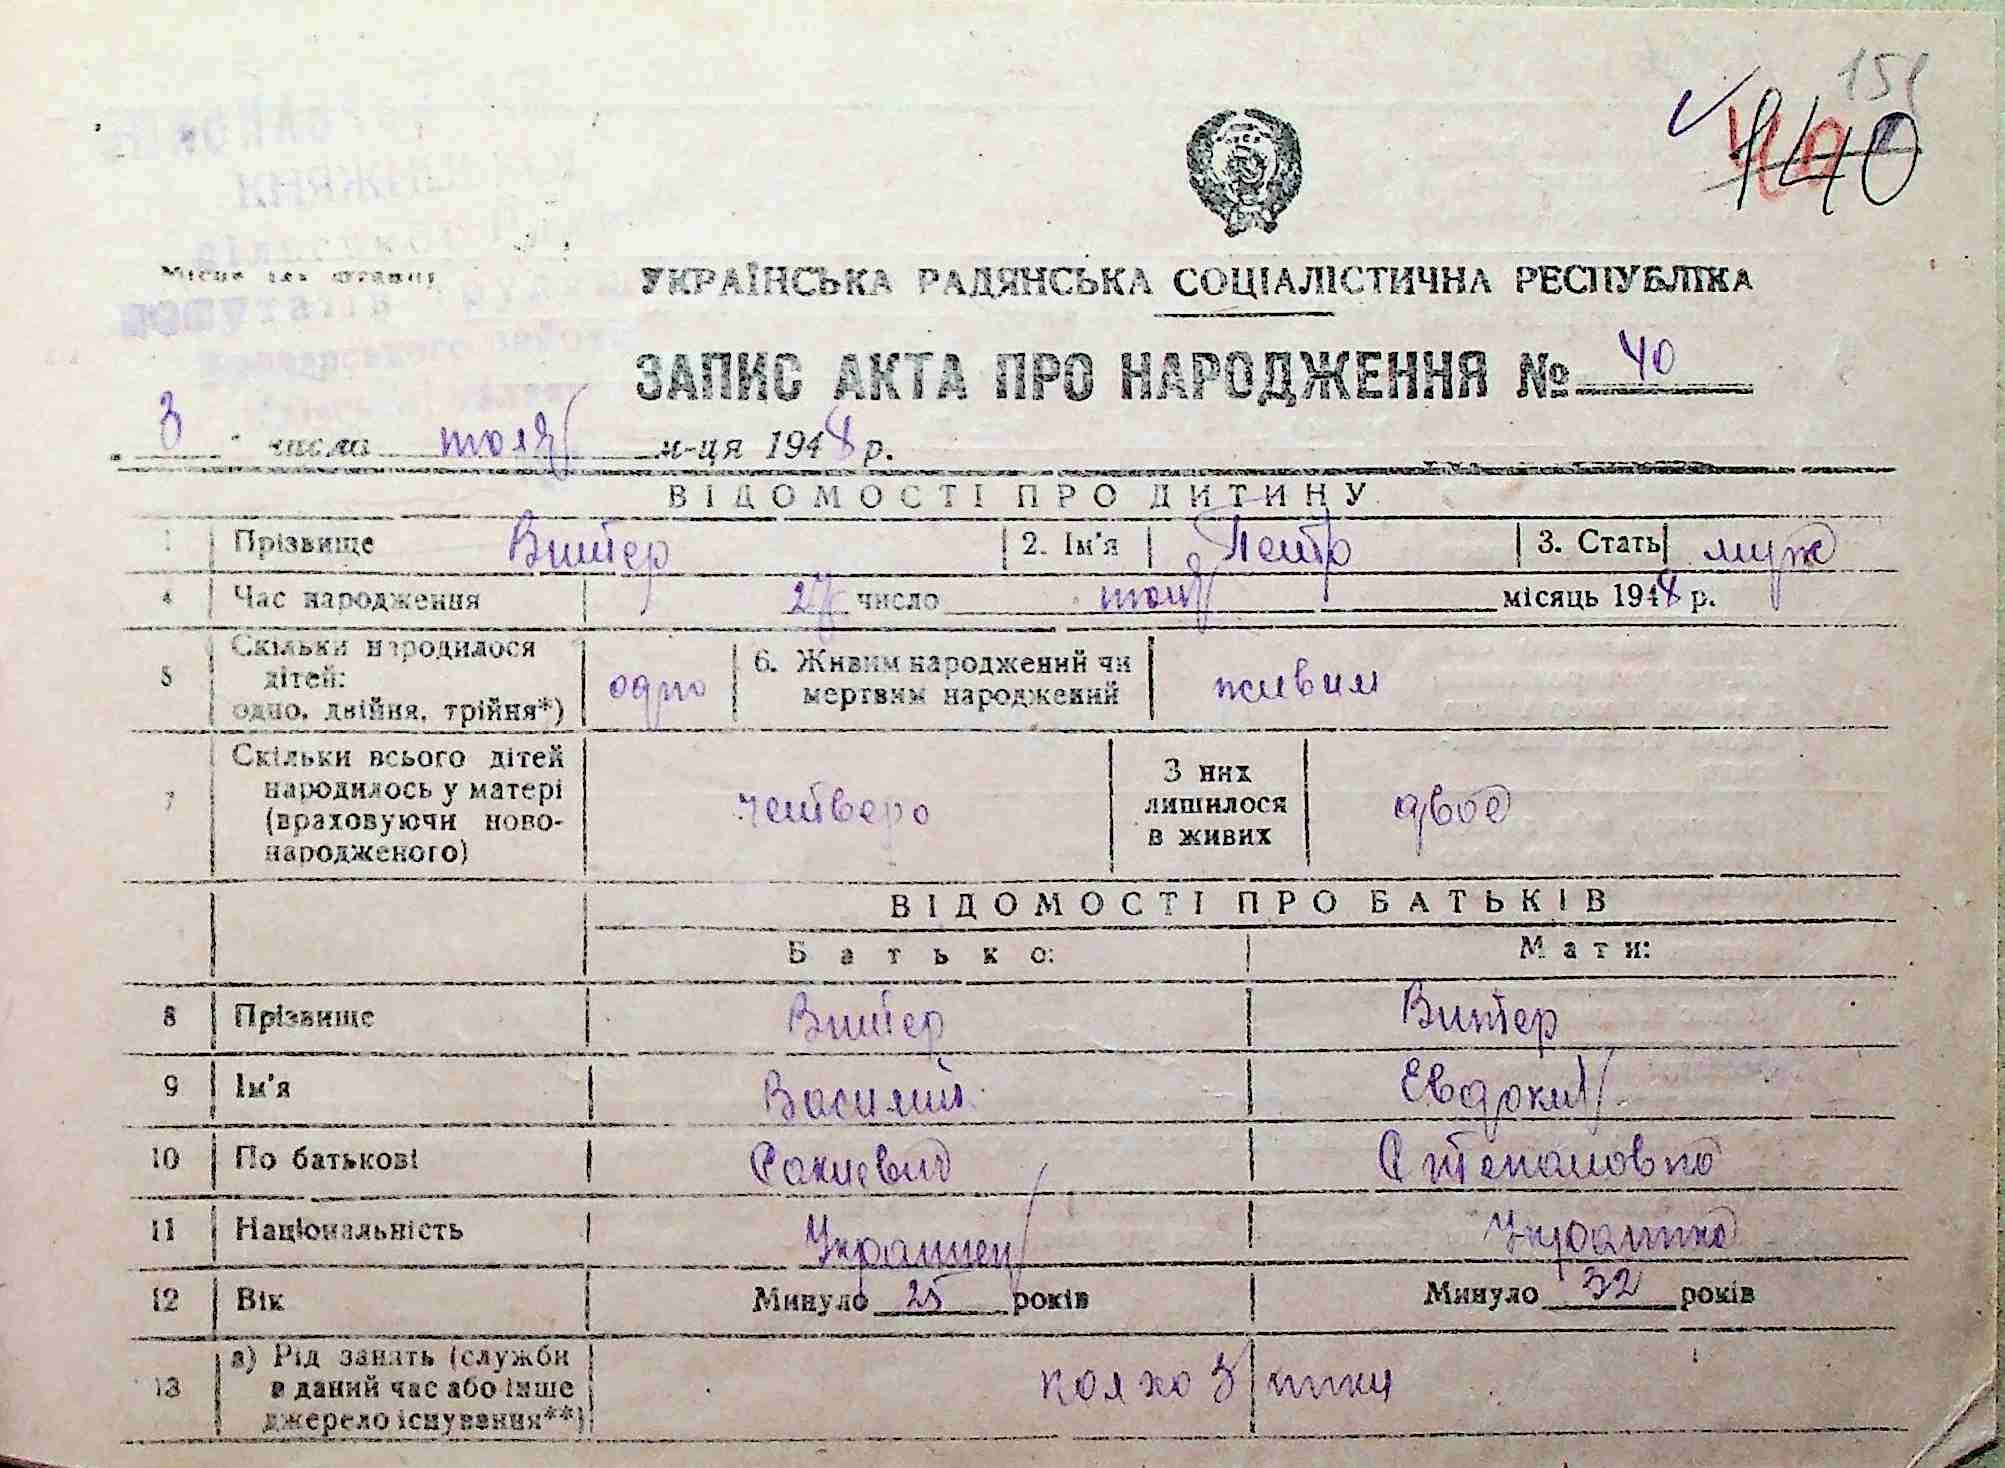 151
140
Місце для штампу
УКРАЇНСЬКА РАДЯНСЬКА СОЦІАЛІСТИЧНА РЕСПУБЛІКА
ЗАПИС АКТА ПРО НАРОДЖЕННЯ № 40
3 числа июля м-ця 1948 р.
ВІДОМОСТІ ПРО ДИТИНУ
1 Прізвище Винтер 2. Ім'я Петр 3. Стать муж
4 Час народження число июня місяць 1948 р.
5 Скільки народилося дітей: одно, двійня, трійня*) одно 6. Живим народжений чи мертвим народжений живим
7 Скільки всього дітей народилось у матері (враховуючи новонародженого) четверо З них лишилося в живих двое
ВІДОМОСТІ ПРО БАТЬКІВ
Батько: Мати:
8 Прізвище Винтер Винтер
9 Ім'я Василий Евдокия
10 По батькові Степановна
11 Національність Украинец Украинка
12 Вік Минуло 25 років Минуло 32 років
13 а) Рід занять (служби в даний час або інше джерело існування**) колхозники